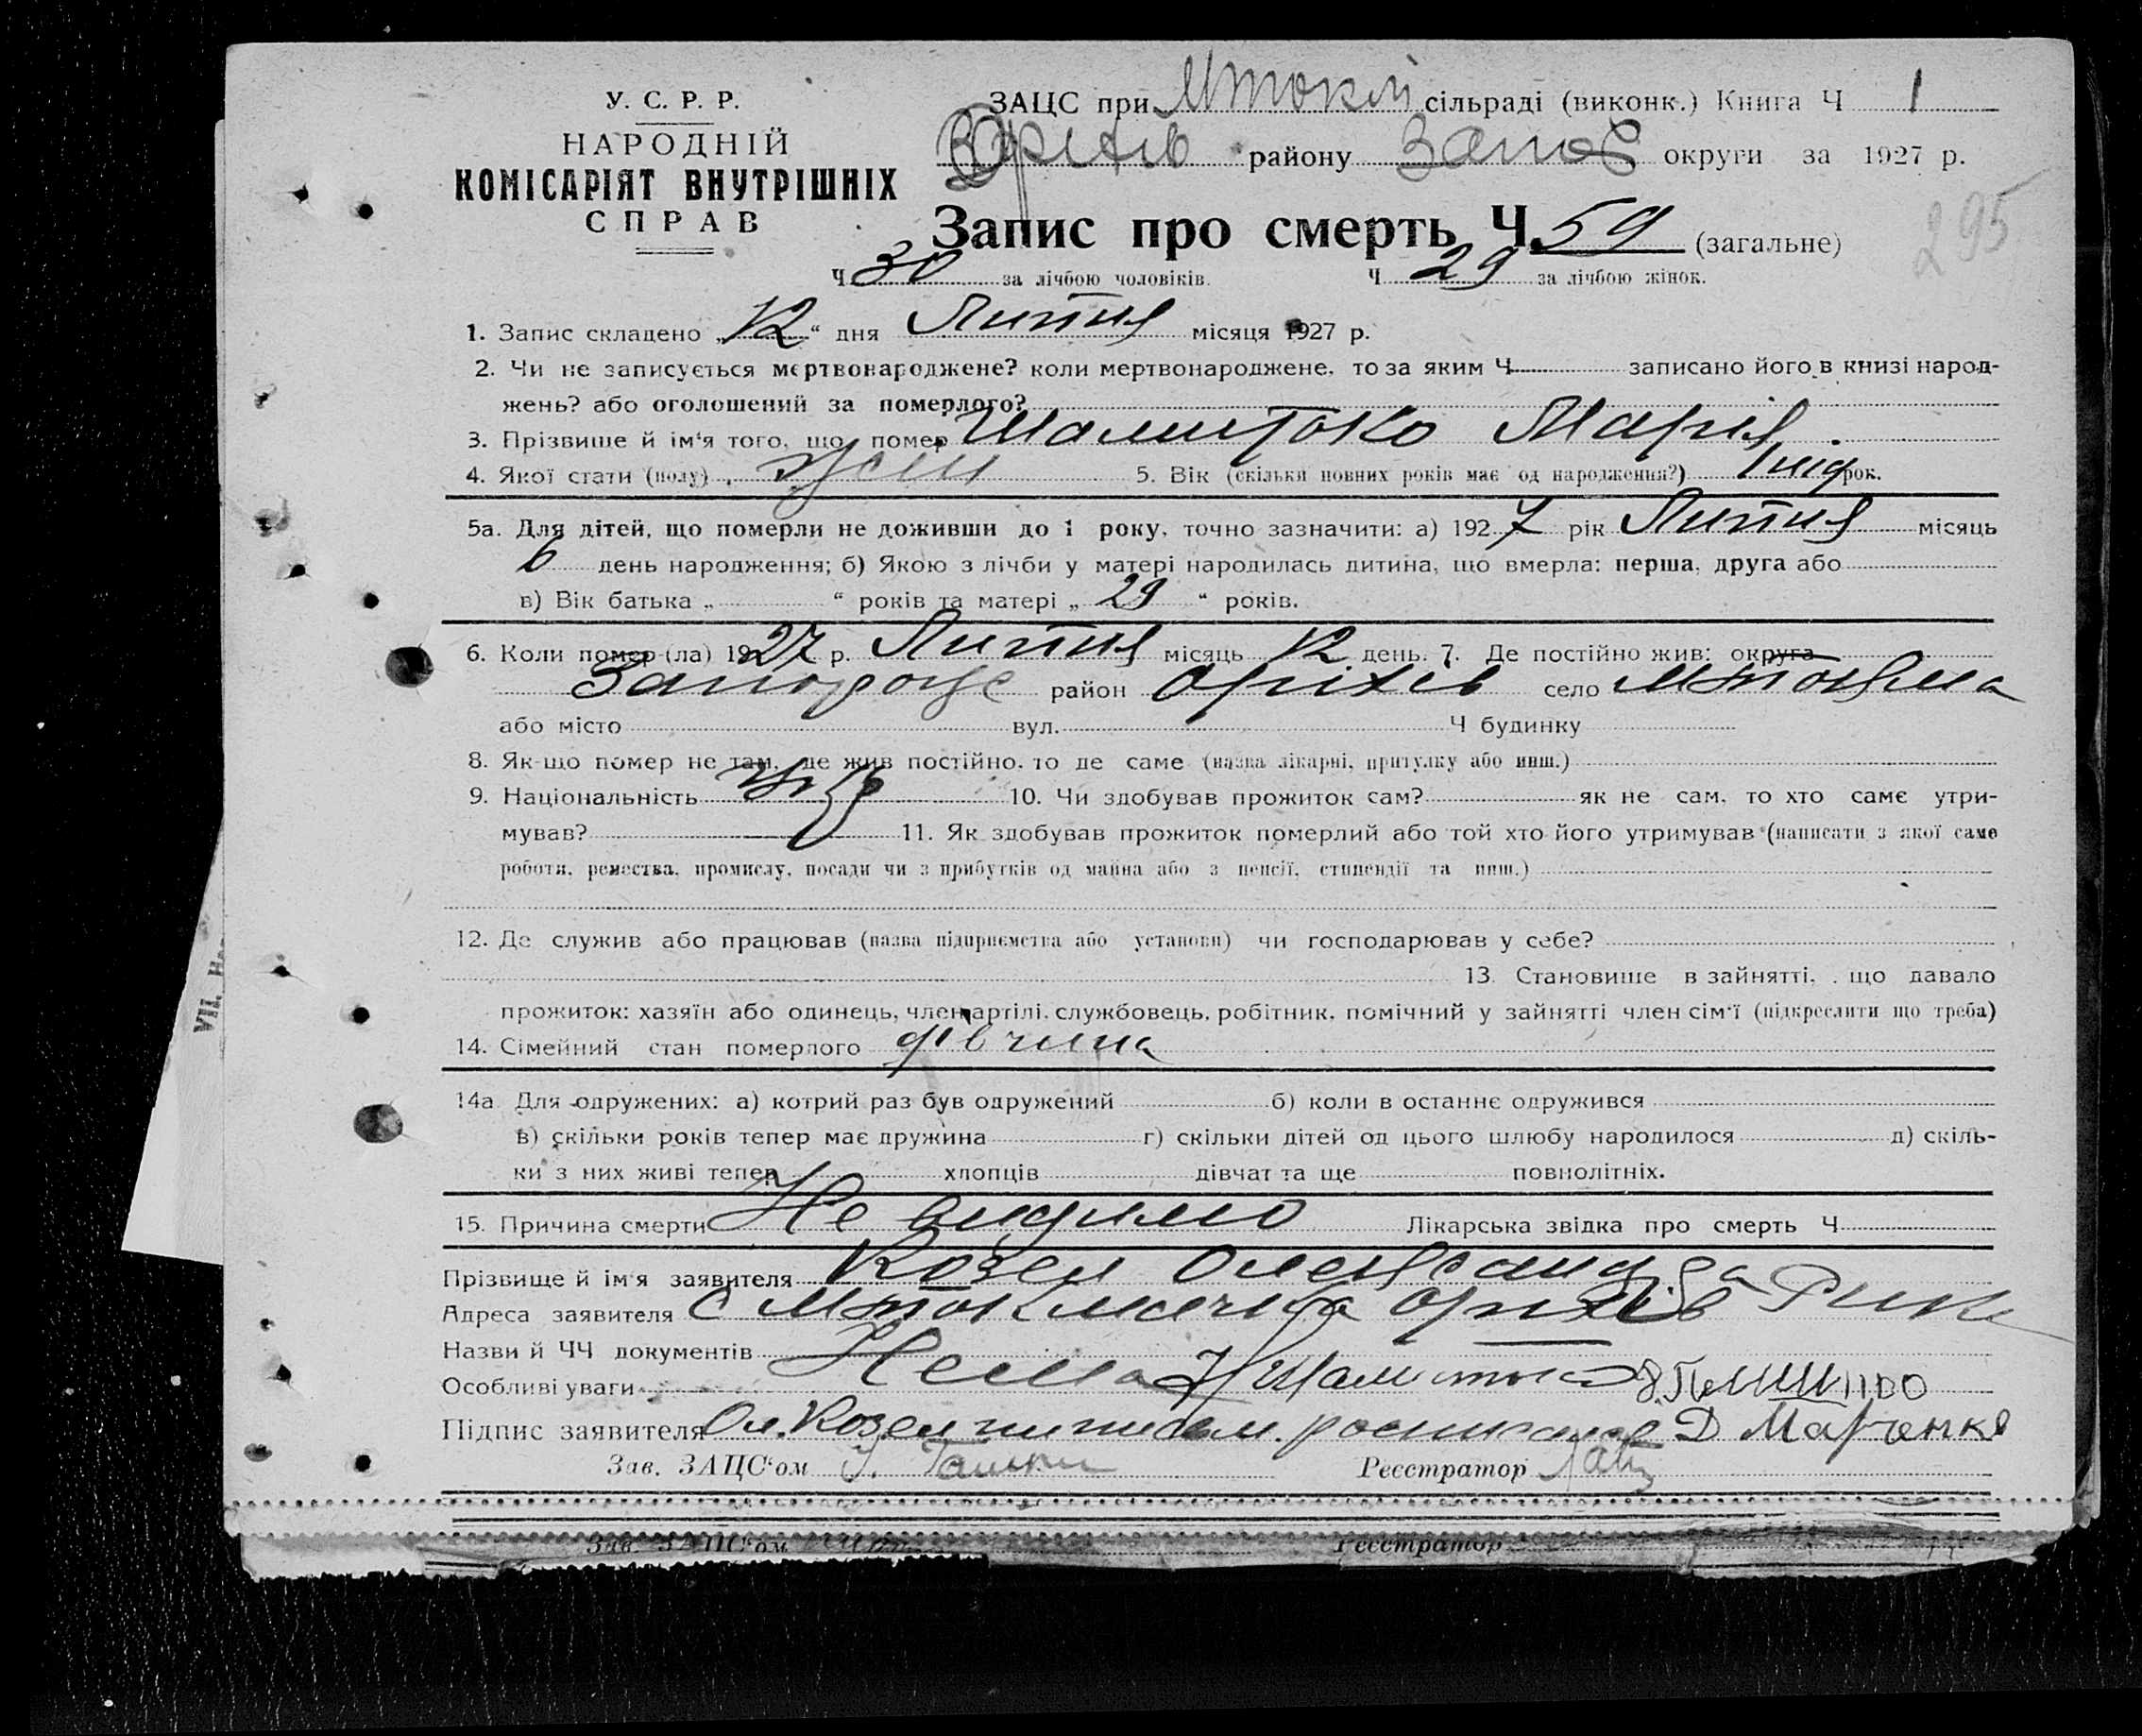 У. С. Р. Р.
НАРОДНІЙ
КОМІСАРІЯТ ВНУТРІШНІХ
СПРАВ
ЗАЦС при Мток сільраді (виконк.) Книга Ч 1
Оріхів району Запоє округи за 1927 р.
295
Запис про смерть Ч. 59 (загальне)
Ч 30 за лічбою чоловіків. Ч 29 за лічбою жінок.
1. Запис складено „12“ дня Липня місяця 1927 р.
2. Чи не записується мертвонароджене? коли мертвонароджене, то за яким Ч записано його в книзі народ-
жень? або оголошений за померлого?
3. Прізвище й ім'я того, що помер Шамитько Марія.
4. Якої стати (полу) жен 5. Вік (скільки повних років має од народження?) 1 рок.
5а. Для дітей, що померли не доживши до 1 року, точно зазначити: а) 1927 рік Липня місяць
6 день народження; б) Якою з лічби у матері народилась дитина, що вмерла: перша, друга або
в) Вік батька „ “ років та матері „ 29 “ років.
6. Коли помер (ла) 1927 р. Липня місяць 12 день. 7. Де постійно жив: округа
Запороже район Оріхів село
або місто вул. Ч будинку
8. Як-що помер не там, де жив постійно, то де саме (назва лікарні, притулку або инш.)
9. Національність Укр 10. Чи здобував прожиток сам? як не сам, то хто саме утри-
мував? 11. Як здобував прожиток померлий або той хто його утримував (написати з якої саме
роботи, ремества, промислу, посади чи з прибутків од майна або з пенсії, стипендії та инш.)
12. Де служив або працював (назва підприємства або установи) чи господарював у себе?
13. Становище в зайнятті, що давало
прожиток: хазяїн або одинець, член артілі, службовець, робітник, помічний у зайнятті член сім'ї (підкреслити що треба)
14. Сімейний стан померлого дівчина
14а. Для одружених: а) котрий раз був одружений б) коли в останнє одружився
в) скільки років тепер має дружина г) скільки дітей од цього шлюбу народилося д) скіль-
ки з них живі тепер хлопців дівчат та ще повнолітніх.
15. Причина смерти Не видимо Лікарська звідка про смерть Ч
Прізвище й ім'я заявителя Козел Олександра
Адреса заявителя С Мток Оріхів
Назви й ЧЧ документів Нема
Особливі уваги
Підпис заявителя Ол. Козел Д Марченко
Зав. ЗАЦС'ом Реєстратор
Зав. ЗАЦС'ом Реєстратор
VII. Н